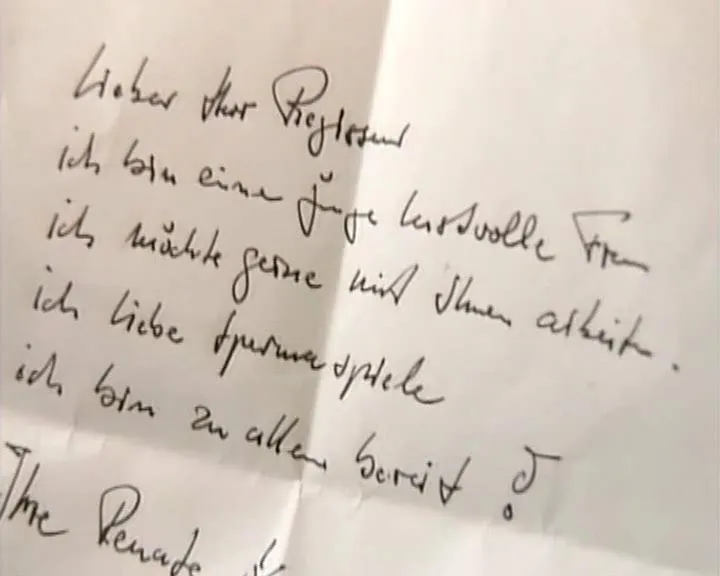 Lieber Herr Regisseur
ich bin eine junge lustvolle Frau
ich möchte gerne mit Ihnen arbeiten.
ich liebe Spermaspiele
ich bin zu allem bereit!
Ihre Renate